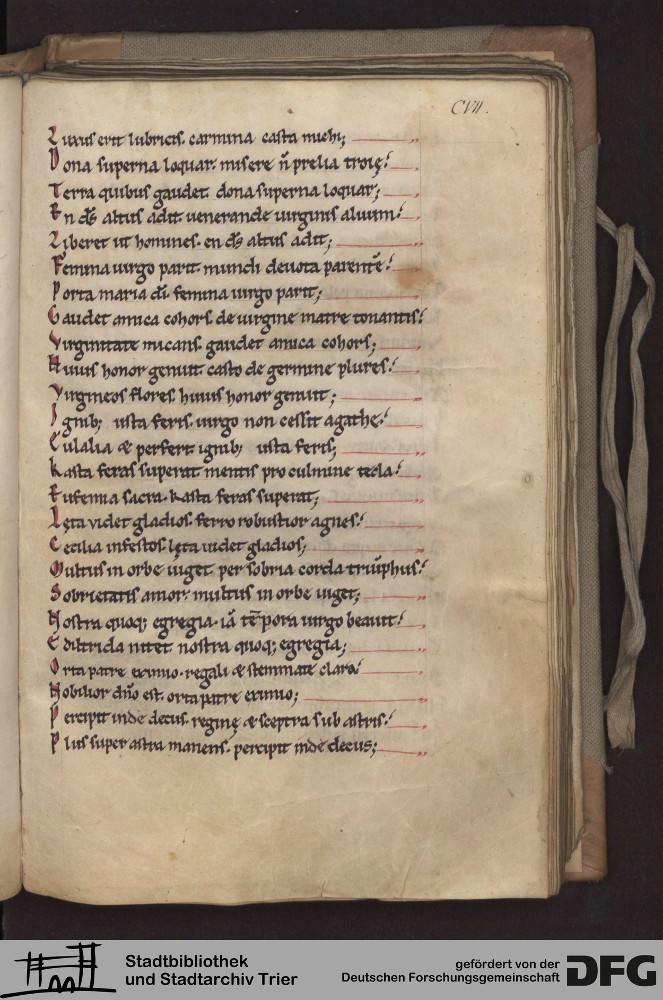 CVII.
Luxus erit lubricis. carmina casta michi;
Dona superna loquar. misere n̄ prelia troię!
Terra quibus gaudet. dona superna loquar;
En ds̄ altus adit uenerande uirginis aluum!
Liberet ut homines. en ds̄ altus adit;
Femina uirgo parit mundi deuota parentē!
Porta maria dī. femina uirgo parit;
Gaudet amica cohors. de uirgine matre tonantis!
Virginitate micans. gaudet amica cohors;
Huius honor genuit casto de germine plures!
Virgineos flores. huius honor genuit;
Ignib; usta feris. uirgo non cessit agathe!
Eulalia & perfert ignib; usta feris;
Kasta feras superat mentis pro culmine tecla!
Eufemia sacra. kasta feras superat;
Lęta videt gladios. ferro robustior agnes!
Cecilia infestos. lęta uidet gladios;
Multus in orbe uiget. per sobria corda triūphus!
Sobrietatis amor. multus in orbe uiget;
Nostra quoq; egregia. iā tēpora uirgo beauit!
Ediltrida nitet nostra quoq; egregia;
Orta patre eximio. regali & stemmate clara!
Nobilior dn̄o est. orta patre eximio;
Percipit inde decus. reginę & sceptra sub astris!
Plus super astra manens. percipit inde decus;
Stadtbibliothek
und Stadtarchiv Trier
gefördert von der
Deutschen Forschungsgemeinschaft
DFG